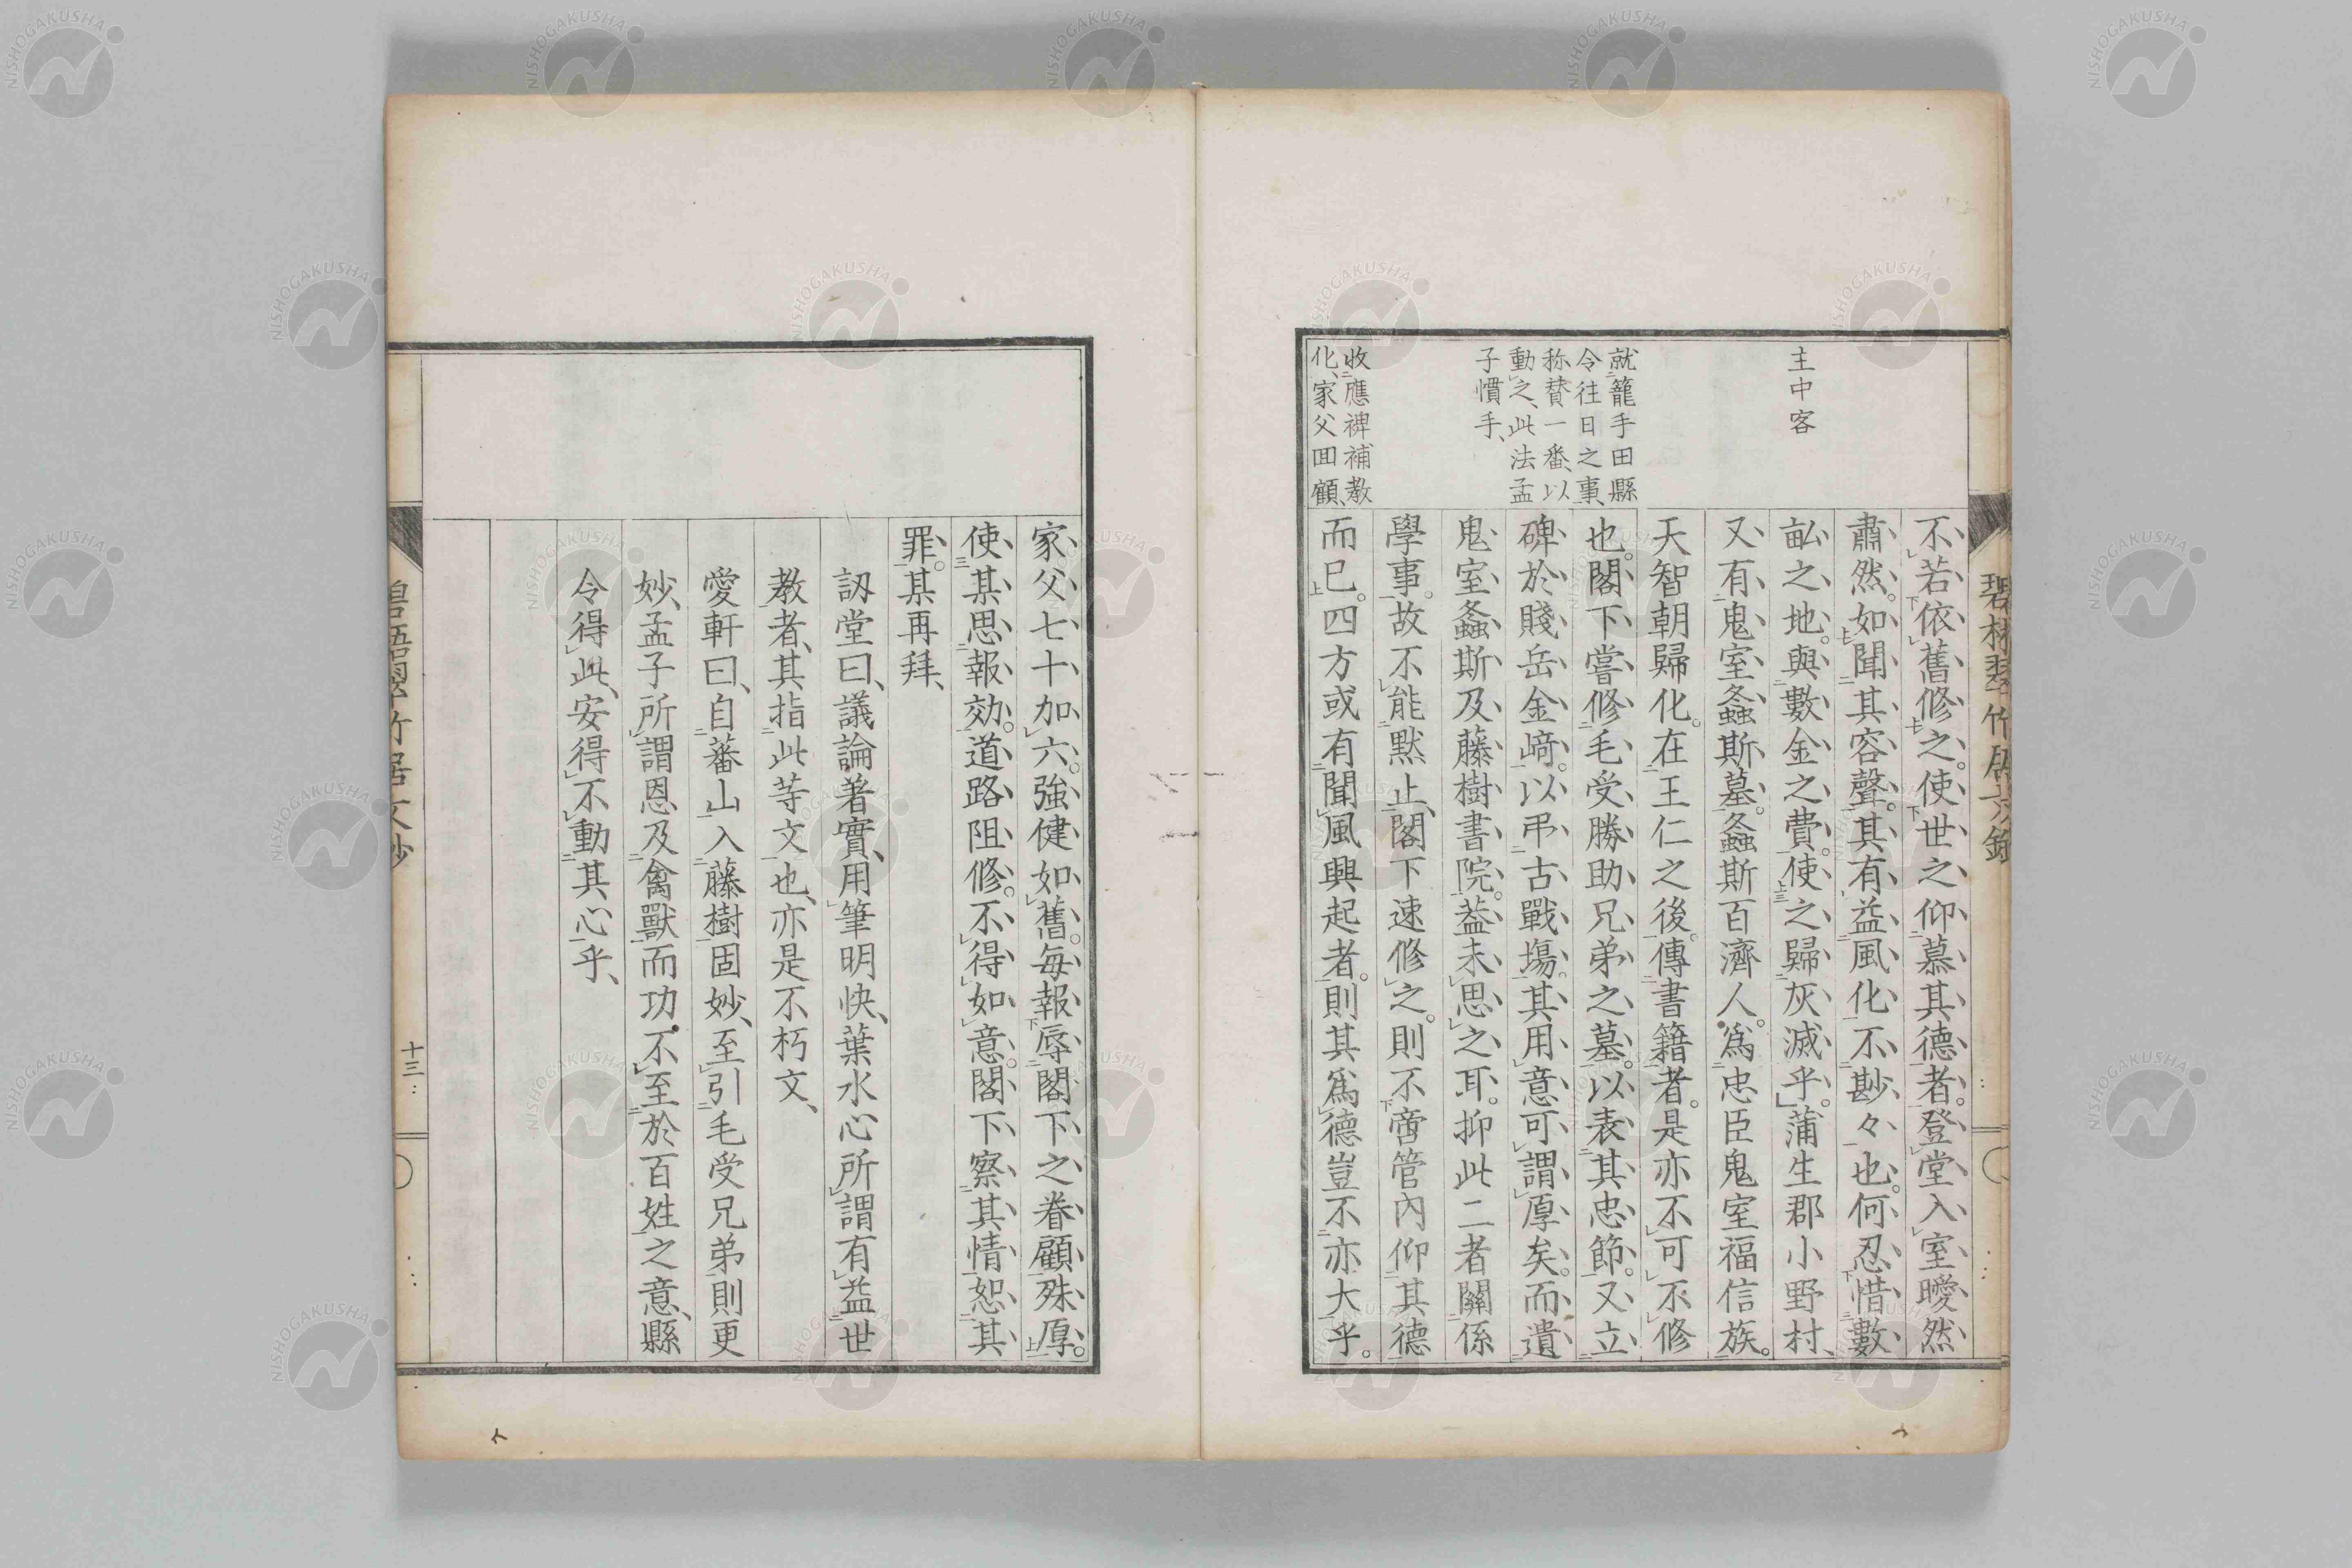 主中客
就籠手田縣
令往日之事、
称賛一番、以
動之、此法孟
子慣手、
收應裨補教
化、家父囬顧、
不若依舊修之。使世之仰慕其德者。登堂入室曖然
肅然。如聞其容聲。其有益風化不尠々也。何忍惜數
畝之地。與數金之費。使之歸灰滅乎。蒲生郡小野村、
又有鬼室螽斯墓。螽斯百濟人。爲忠臣鬼室福信族。
天智朝歸化。在王仁之後。傳書籍者。是亦不可不修
也。閣下嘗修毛受勝助兄弟之墓。以表其忠節。又立
碑於賤岳金﨑。以弔古戰塲。其用意可謂厚矣。而遺
鬼室螽斯及藤樹書院。葢未思之耳。抑此二者關係
學事。故不能默止、閣下速修之。則不啻管內仰其德
而已。四方或有聞風興起者。則其爲德豈不亦大乎。
家父七十加六。強健如舊。每報辱閣下之眷顧殊厚。
使某思報効。道路阻修。不得如意。閣下察其情恕其
罪。某再拜、
訒堂曰、議論著實、用筆明快、葉水心所謂有益世
教者、其指此等文也、亦是不朽文、
愛軒曰、自蕃山入藤樹固妙、至引毛受兄弟則更
妙、孟子所謂恩及禽獸而功不至於百姓之意、縣
令得此、安得不動其心乎、
十三